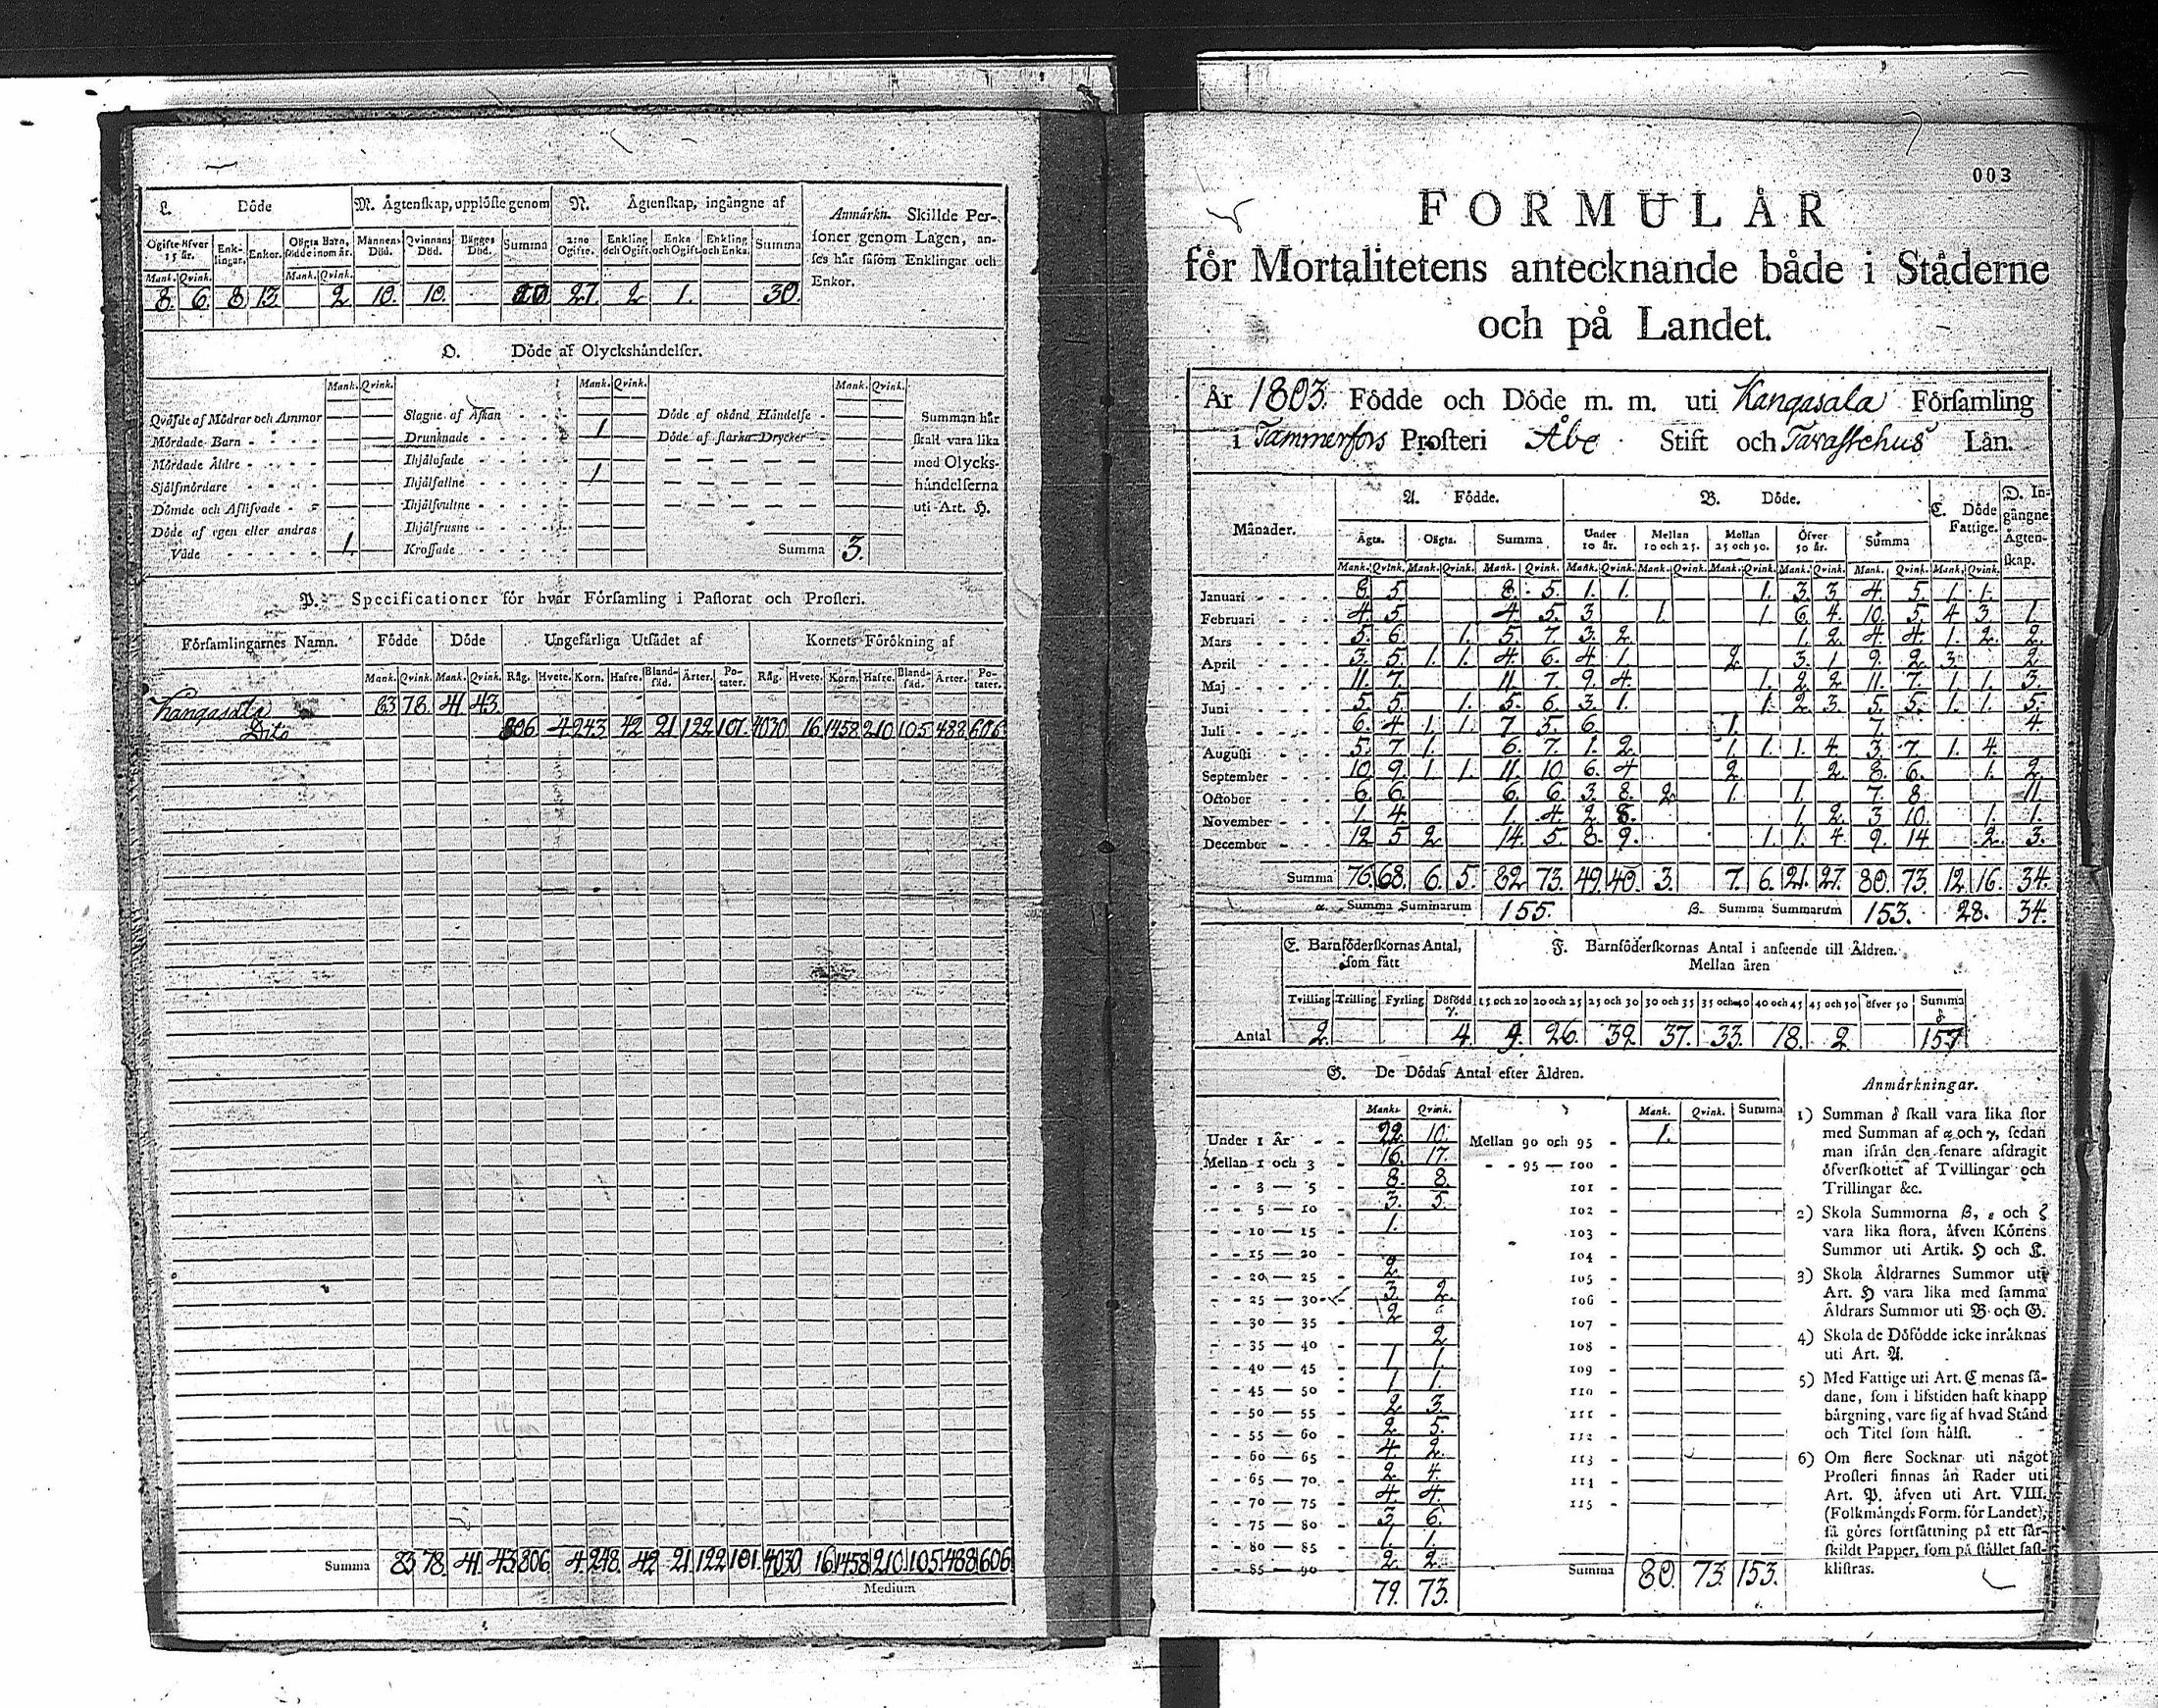 L. Döde
M. Ägtenskap, upplöste genom
N. Ägtenskap, ingångne af
Anmärkn. Skillde Per-
soner genom Lagen, an-
ses här såsom Enklingar och
Enkor.
Ogifte öfver 15 år. Enk-lingar. Enkor. Oägta Barn, födde inom år. Mannens Död. Qvinnans Död. Bägges Död. Summa 2:ne Ogifte. Enkling och Ogift. Enka och Ogift. Enkling och Enka. Summa
Mank. Qvink. Mank. Qvink.
8. 6. 8. 13. 2 10. 10. 20 27. 2 1. 30.
O. Döde af Olyckshändelser.
Mank. Qvink. Mank. Qvink. Mank. Qvink.
Qväfde af Mödrar och Ammor
Mördade Barn
Mördade Äldre
Sjelfmördare
Dömde och Aflifvade
Döde af egen eller andras
Våde 1.
Slagne af Åskan
Drunknade 1
Ihjälosade
Ihjälfallne 1
Ihjälsvultne
Ihjälfrusne
Krossade
Döde af okänd Händelse
Döde af starka Drycker
Summa 3.
Summan här
skall vara lika
med Olycks-
händelserna
uti Art. H.
P. Specificationer för hvar Församling i Pastorat och Prosteri.
Församlingarnes Namn. Födde Döde Ungefärliga Utsädet af Kornets Förökning af
Mank. Qvink. Mank. Qvink. Råg. Hvete. Korn. Hafre. Bland-säd. Ärter. Po-tater. Råg. Hvete. Korn. Hafre. Bland-säd. Ärter. Po-tater.
Kangasala 83 78. 41 43.
Dito 806 4 243 42 21 122 101. 4030 16 1458 210 105 488 606
Summa 83 78. 41. 43. 806 4. 248. 42 21. 122 101. 4030 16 1458 210 105 488 606
Medium
003
FORMULÄR
för Mortalitetens antecknande både i Städerne
och på Landet.
År 1803. Födde och Döde m. m. uti Kangasala Församling
i Tammerfors Prosteri Åbo Stift och Tavastehus Län.
Månader. A. Födde. B. Döde. C. Döde Fattige. D. In-gångne Ägten-skap.
Ägta. Oägta. Summa Under 10 år. Mellan 10 och 25. Mellan 25 och 50. Öfver 50 år. Summa
Mank. Qvink. Mank. Qvink. Mank. Qvink. Mank. Qvink. Mank. Qvink. Mank. Qvink. Mank. Qvink. Mank. Qvink. Mank. Qvink.
Januari 8 5 8. 5. 1. 1. 1. 3 3 4. 5 1. 1.
Februari 4 5 4 5 3 1. 1 6 4. 10. 5 4 3. 1.
Mars 5. 6 1. 5. 7 3. 2 1. 2 4 4. 1. 2. 2.
April 3. 5. 1. 1. 4. 6. 4 1 2. 3. 1 9. 2 3. 2
Maj 11. 7. 11. 7. 9. 4. 1. 2 2 11. 7. 1. 1. 3.
Juni 5 5. 1. 5. 6 3. 1. 1. 2 3. 5. 5. 1. 1. 5.
Juli 6. 4 1. 1. 7 5. 6. 1. 7. 4.
Augusti 5. 7 1. 6. 7. 1. 2 1. 1. 1. 4. 3. 7 1. 4.
September 10 9. 1. 1. 11. 10 6. 4 2. 2. 8. 6. 1. 2.
October 6. 6. 6. 6 3. 8. 2 1. 1. 7. 8 11.
November 1. 4. 1. 4. 2. 8. 1. 2. 3 10. 1. 1.
December 12 5 2 14. 5. 8. 9. 1. 1. 4 9. 14 2. 3.
Summa 76. 68. 6. 5. 82 73. 49. 40. 3. 7. 6. 21. 27. 80. 73. 12. 16. 34.
α. Summa Summarum 155. β. Summa Summarum 153. 28. 34.
E. Barnföderskornas Antal,
som fått
F. Barnföderskornas Antal i anseende till Åldren.
Mellan åren
Tvilling Trilling Fyrling Dödfödd γ. 15 och 20 20 och 25 25 och 30 30 och 35 35 och 40 40 och 45 45 och 50 öfver 50 Summa δ
Antal 2. 4. 9. 26. 32. 37. 33. 18. 2. 157.
G. De Dödas Antal efter Åldren.
Mank. Qvink. Mank. Qvink. Summa
Under 1 År 22. 10. Mellan 90 och 95 1.
Mellan 1 och 3 16. 17. 95 — 100
3 — 5 8. 8. 101
5 — 10 3. 5. 102
10 — 15 1. 103
15 — 20 104
20 — 25 2. 105
25 — 30 3. 2. 106
30 — 35 2 107
35 — 40 2 108
40 — 45 1 1. 109
45 — 50 1 1. 110
50 — 55 2 3. 111
55 — 60 2 5. 112
60 — 65 4. 2. 113
65 — 70 2 4. 114
70 — 75 4. 4. 115
75 — 80 3 6.
80 — 85 1. 1.
85 — 90 2. 2.
79. 73. Summa 80. 73. 153.
Anmärkningar.
1) Summan δ skall vara lika stor
med Summan af α och γ, sedan
man ifrån den senare afdragit
öfverskottet af Tvillingar och
Trillingar &c.
2) Skola Summorna β, ε och ζ
vara lika stora, äfven Könens
Summor uti Artik. H och L.
3) Skola Åldrarnes Summor uti
Art. H vara lika med samma
Åldrars Summor uti B och G.
4) Skola de Döfödde icke inräknas
uti Art. A.
5) Med Fattige uti Art. C menas så-
dane, som i lifstiden haft knapp
bärgning, vare sig af hvad Stånd
och Titel som hälst.
6) Om flere Socknar uti något
Prosteri finnas än Rader uti
Art. P. äfven uti Art. VIII.
(Folkmängds Form. för Landet),
så göres fortsättning på ett sär-
skildt Papper, som på stället fast-
klistras.